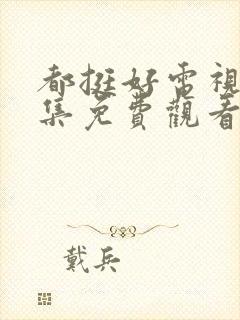 都挺好電視
集免費觀看
戴兵